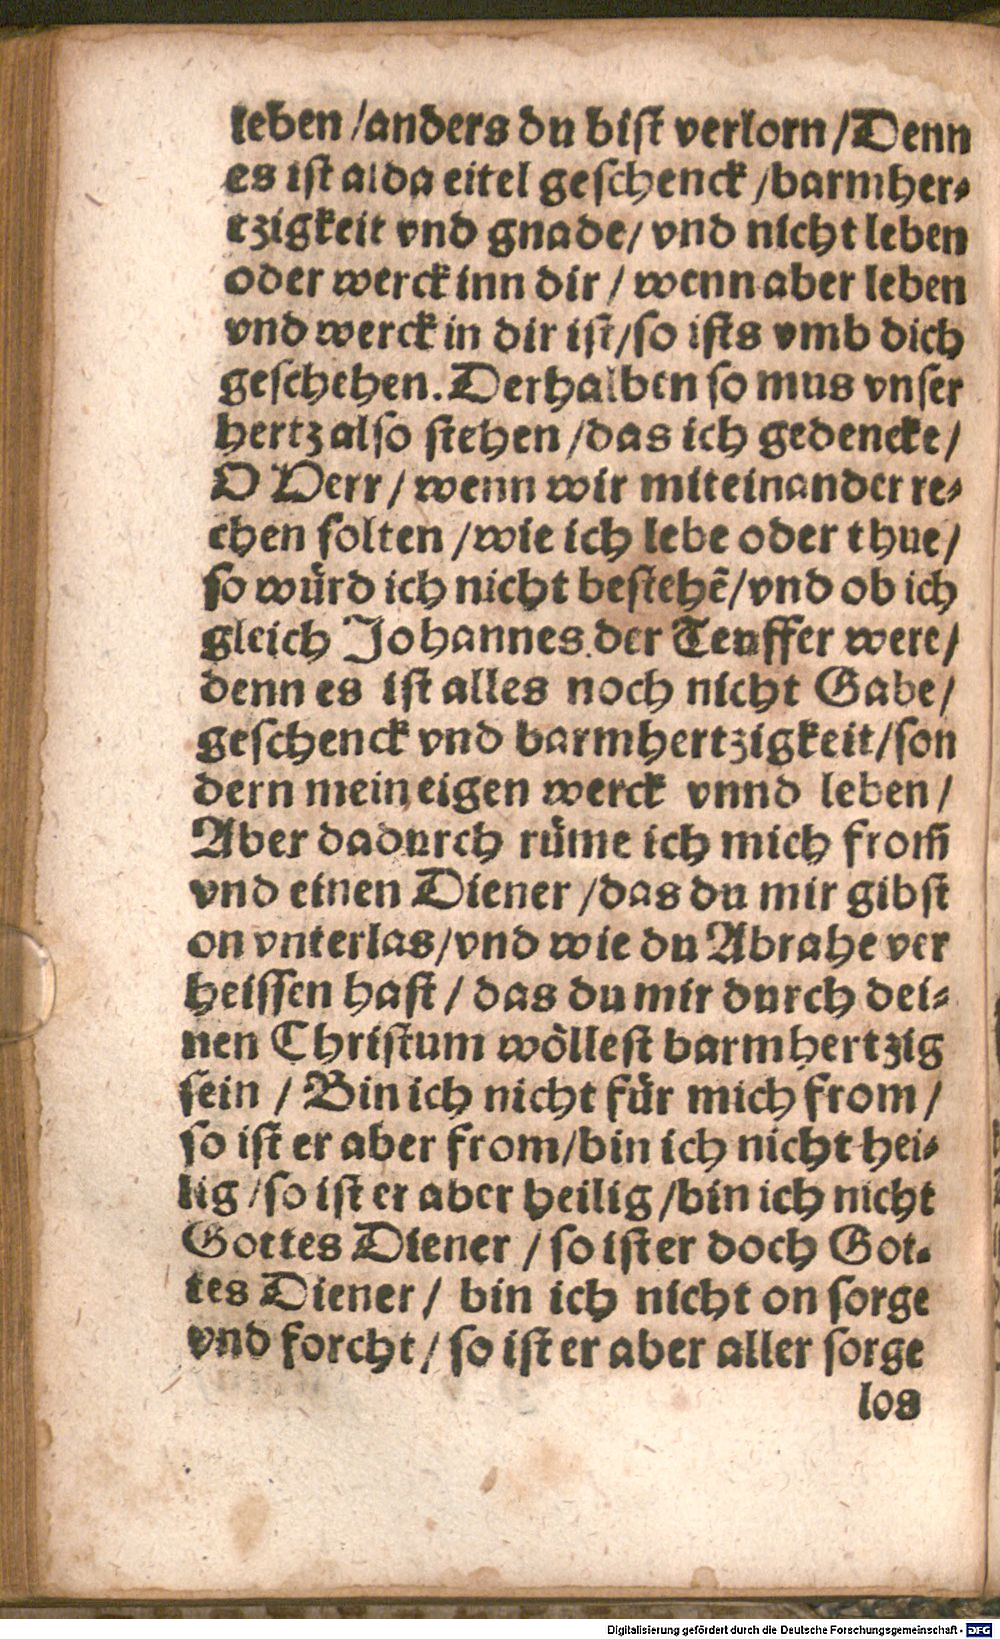 leben /anders du bist verlorn /Denn
es ist alda eitel geschenck /barmher-
tzigkeit vnd gnade/ vnd nicht leben
oder werck inn dir / wenn aber leben
vnd werck in dir ist/so ists vmb dich
geschehen. Derhalben so mus vnser
hertz also stehen /das ich gedencke/
O Herr / wenn wir miteinander re-
chen solten /wie ich lebe oder thue/
so würd ich nicht bestehẽ/vnd ob ich
gleich Johannes der Teuffer were/
denn es ist alles noch nicht Gabe/
geschenck vnd barmhertzigkeit/son
dern mein eigen werck vnnd leben/
Aber dadurch rüme ich mich from̃
vnd einen Diener /das du mir gibst
on vnterlas/vnd wie du Abrahe ver
heissen hast / das du mir durch dei-
nen Christum wöllest barmhertzig
sein / Bin ich nicht für mich from /
so ist er aber from/bin ich nicht hei-
lig /so ist er aber heilig /bin ich nicht
Gottes Diener / so ist er doch Got-
tes Diener / bin ich nicht on sorge
vnd forcht / so ist er aber aller sorge
los
Digitalisierung gefördert durch die Deutsche Forschungsgemeinschaft - DFG